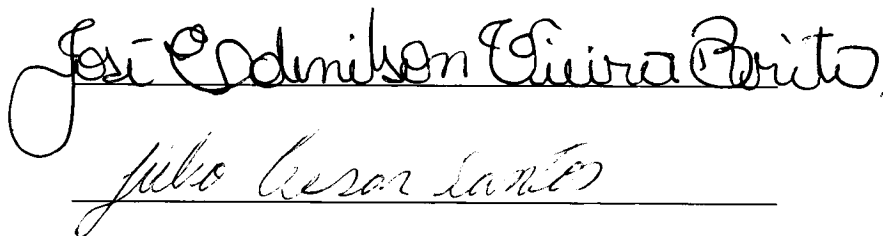 José Edenilson Vieira Brito
Julio Cesar Santos